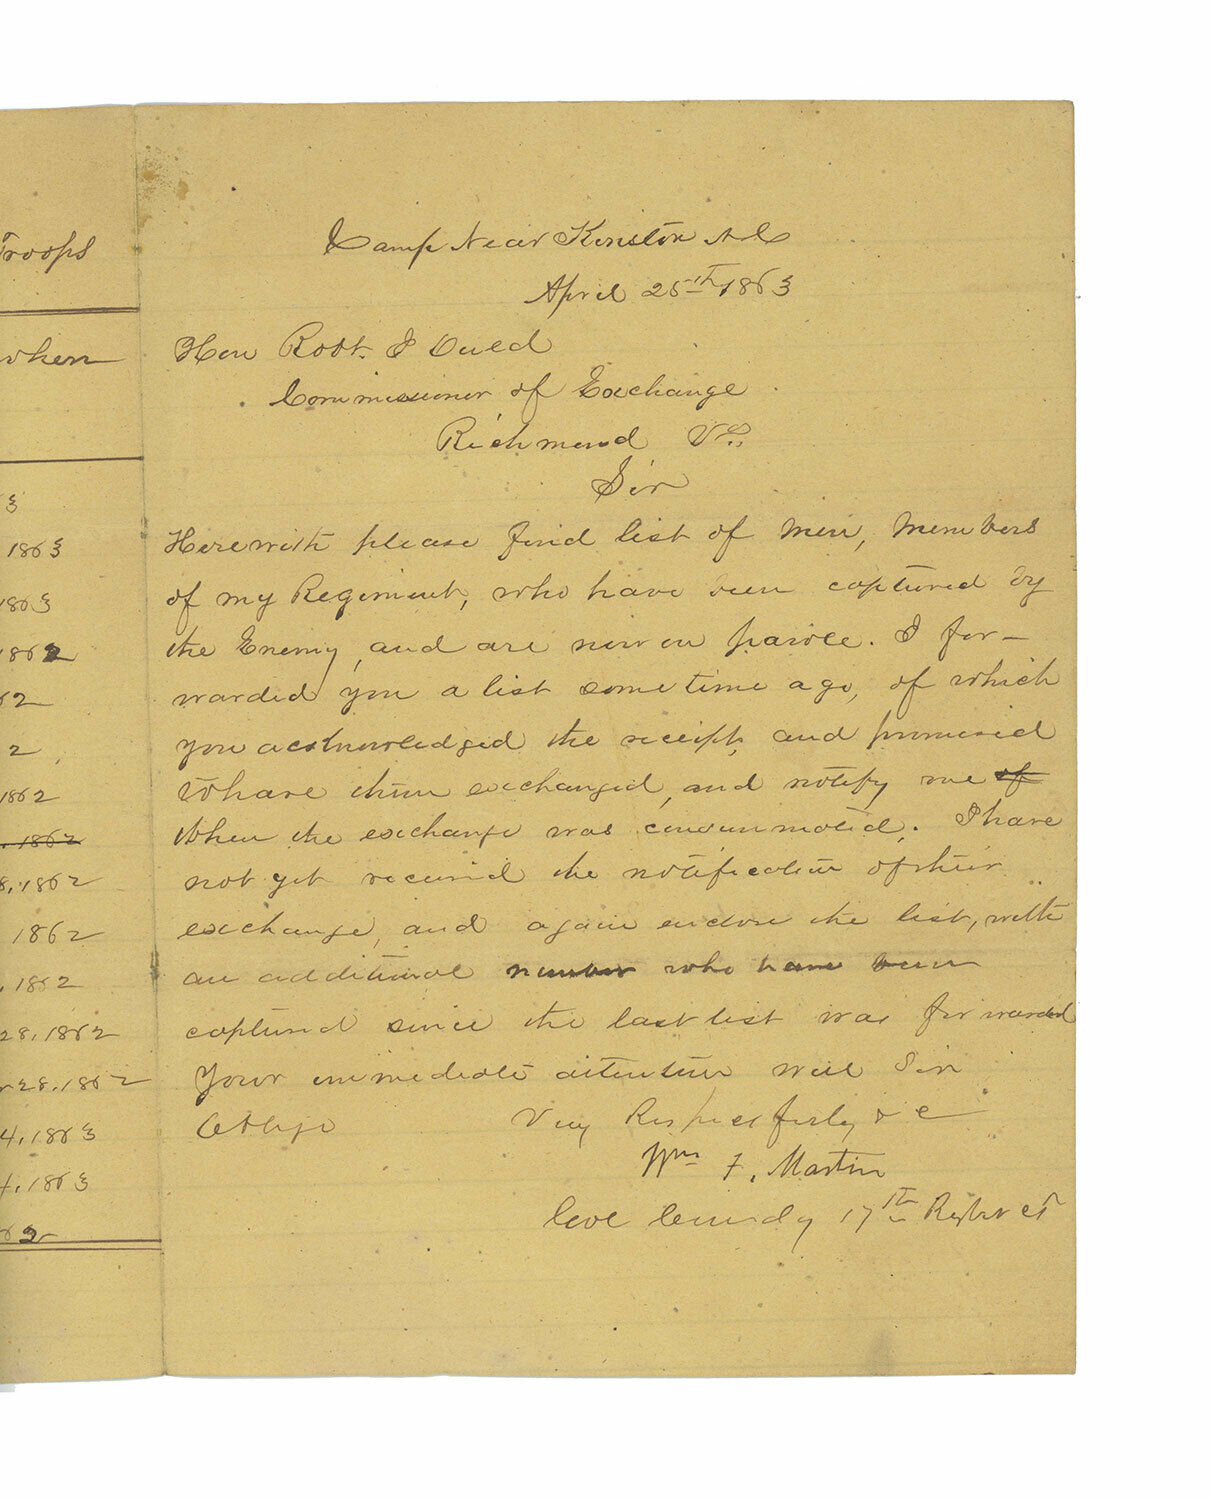 Troops
when
3
1863
1863
1862
62
2
1862
1862
8, 1862
1862
, 1862
28, 1862
r 28, 1862
4, 1863
4, 1863
Camp Near Kinston N C
April 25th 1863
Hon Robt. J Ould
Commissioner of Exchange
Richmond Va.
Sir
Herewith please find list of men, members
of my Regiment, who have been captured by
the Enemy, and are now on parole. I for-
warded you a list sometime ago, of which
you acknowledged the receipt, and promised
to have them exchanged, and notify me of
when the exchange was consummated. I have
not yet received the notification of their
exchange, and again enclose the list, with
an additional number who have been
captured since the last list was forwarded
Your immediate attention will Sir
Oblige Very Respectfully & C
Wm F. Martin
Col Comdg 17th Regt N C T